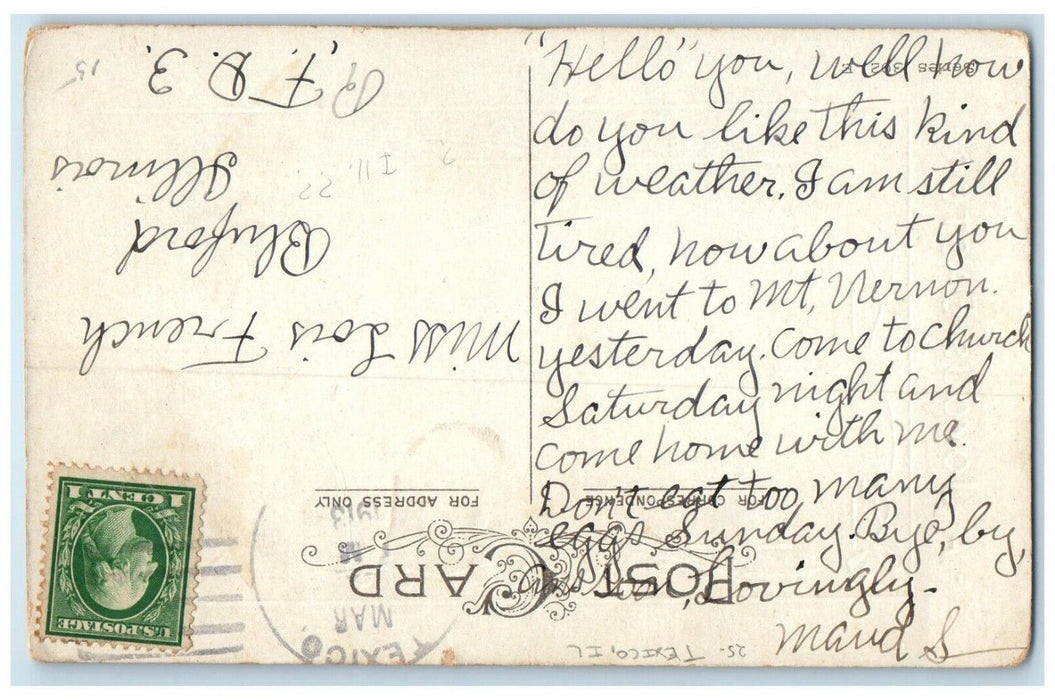 "Hello" you, well how
do you like this kind
of weather. I am still
tired, how about you
I went to Mt, Vernon.
yesterday. Come to church
Saturday night and
come home with me.
Don't eat too many
eggs Sunday. Bye, by,
Lovingly-
Maud S
25- TEXICO, IL
POST CARD
FOR CORRESPONDENCE
FOR ADDRESS ONLY
TEXICO
MAR
1913
U.S. POSTAGE
1 CENT 1
Miss Lois French
Bluford
Illinois
R, F. D. 3,
Ill. 22
2
15
Series 302 E